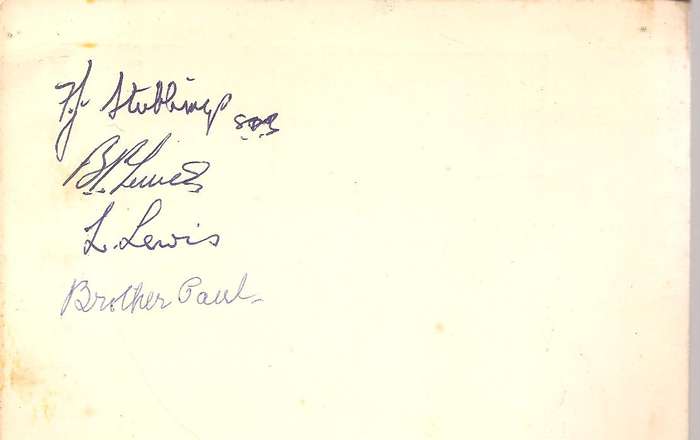 F.J. Stubbings SDB
B.P.
L. Lewis
Brother Paul